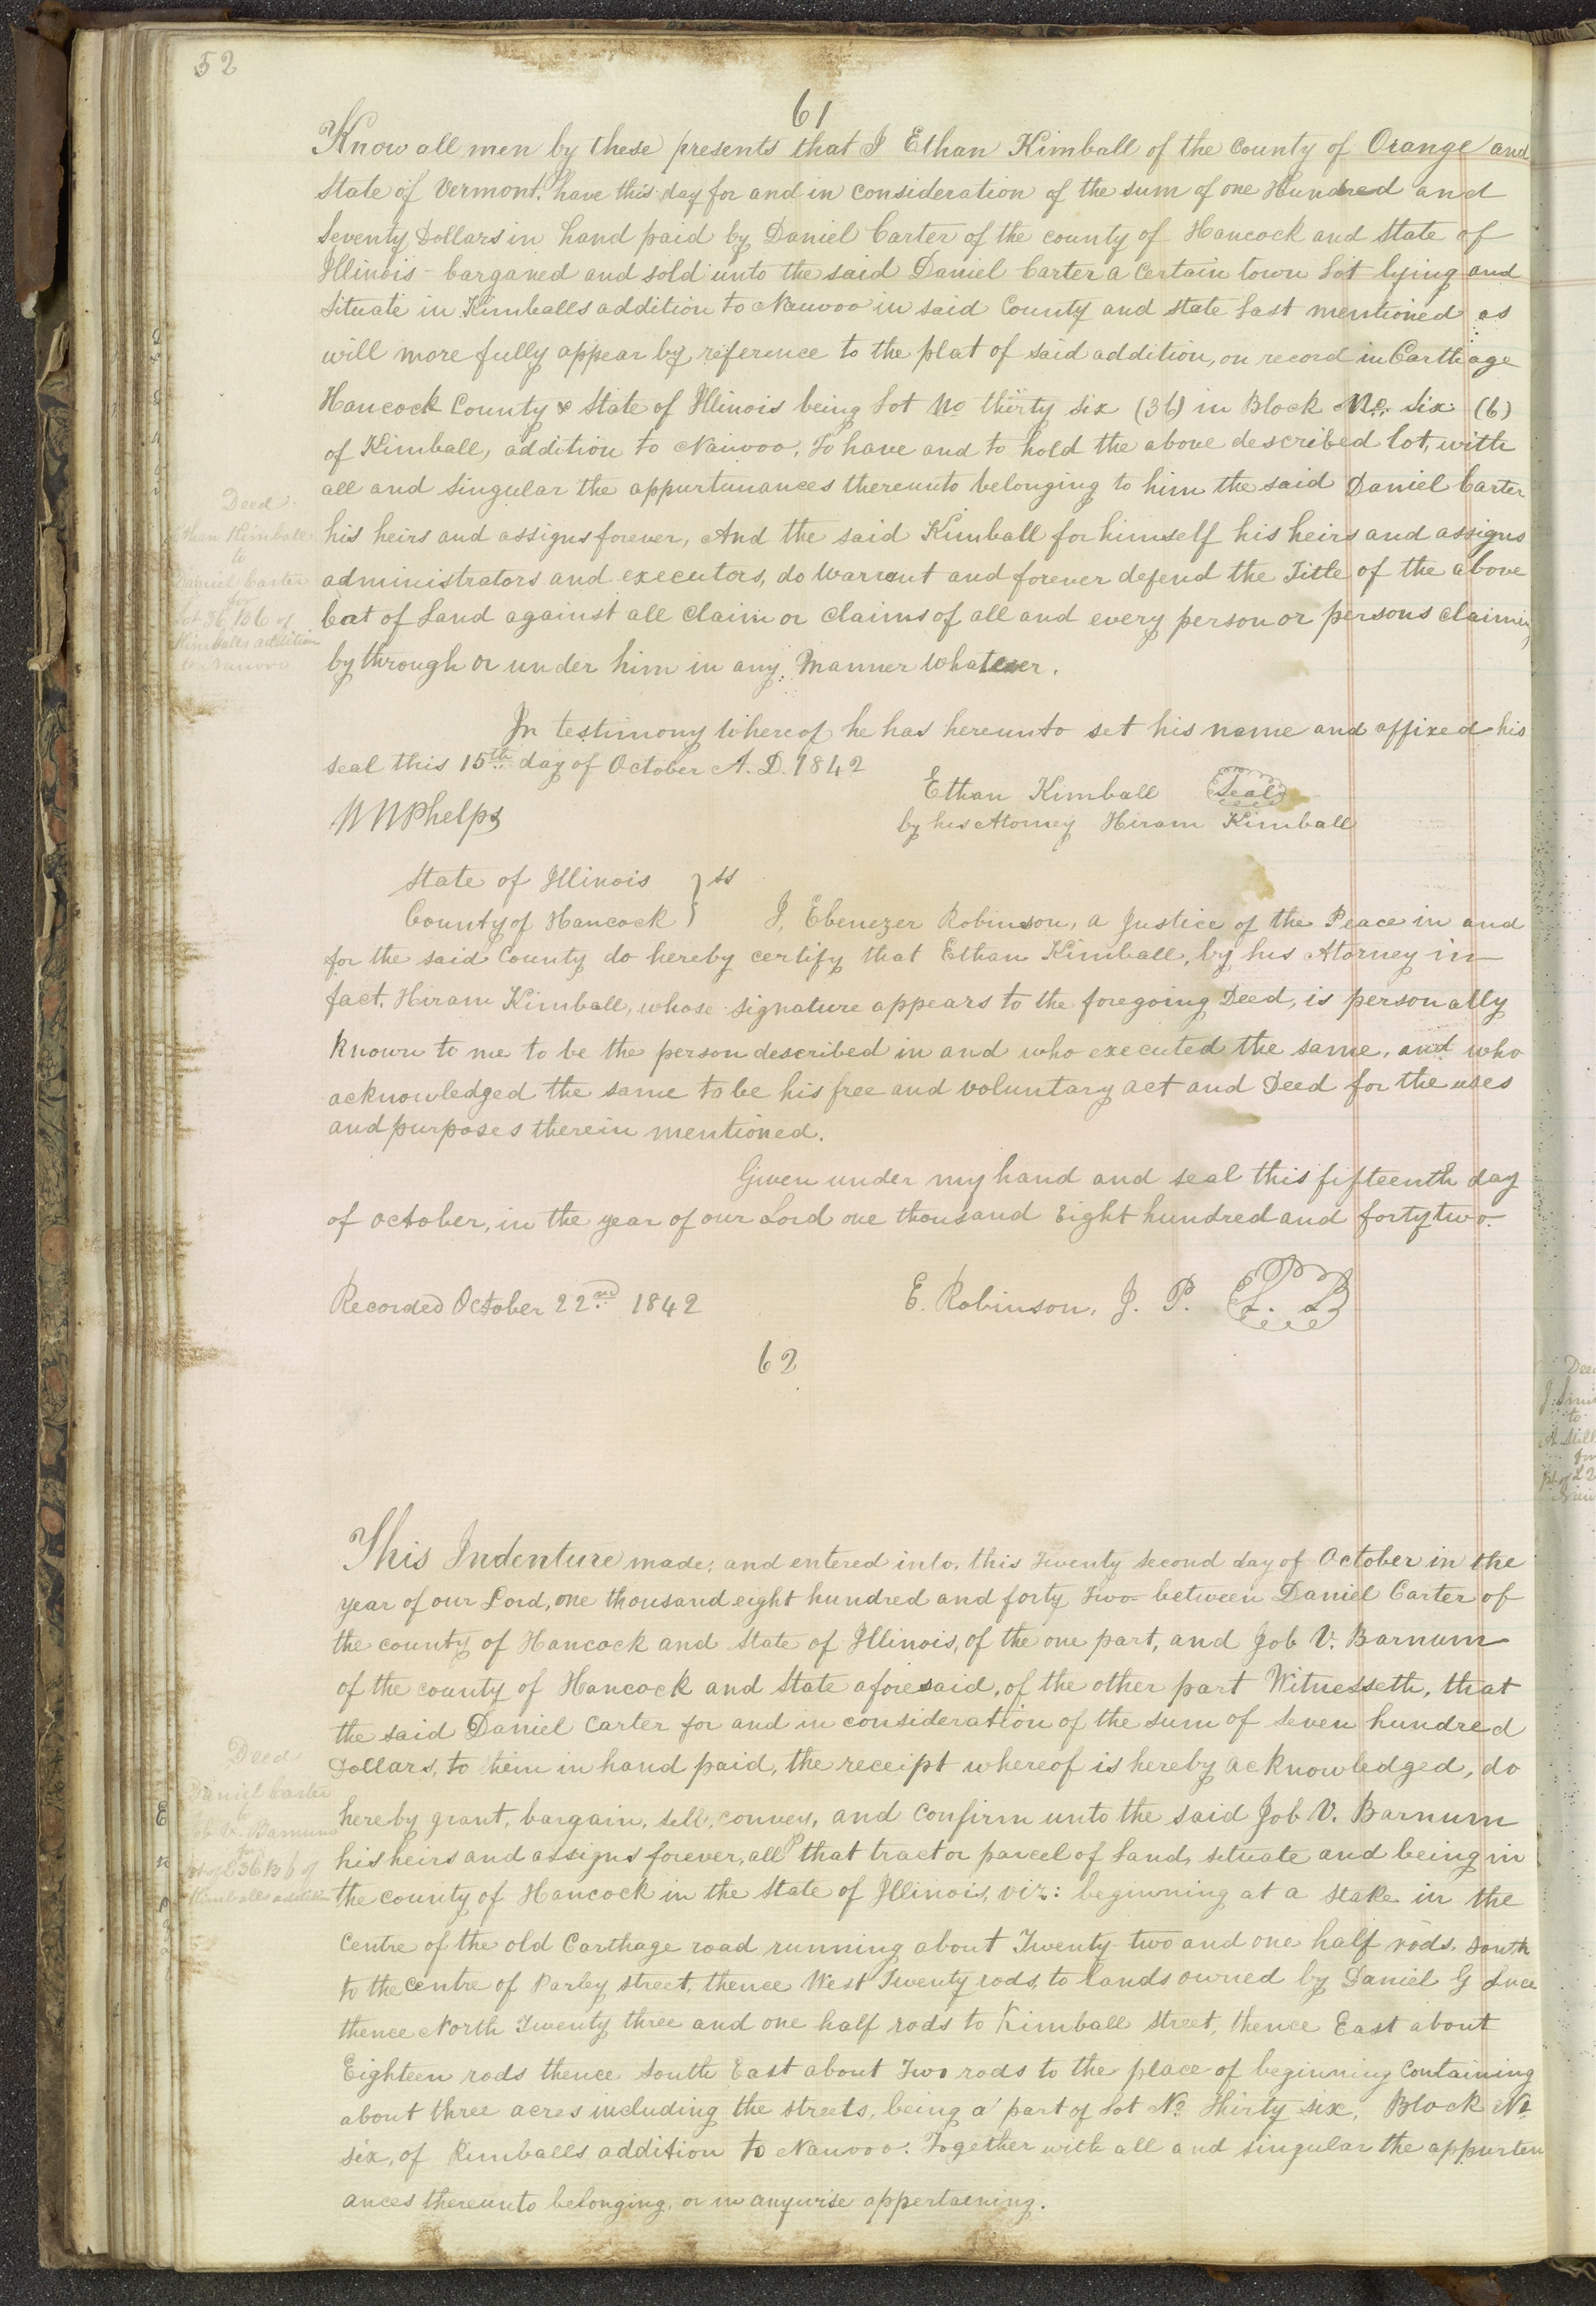 52
61
Know all men by these presents that I Ethan Kimball of the County of Orange and
State of Vermont, have this day for and in consideration of the sum of one Hundred and
Seventy Dollars in hand paid by Daniel Carter of the county of Hancock and State of
Illinois - barganed and sold unto the said Daniel Carter a Certain town Lot lying and
Situate in Kimballs addition to Nauvoo in said County and State last mentioned as
will more fully appear by reference to the plat of said addition, on record in Carthage
Hancock County & State of Illinois being Lot No thirty six (36) in Block No. six (6)
of Kimball, addition to Nauvoo, To have and to hold the above described lot, with
all and Singular the appurtunances thereunto belonging to him the said Daniel Carter
Deed
Ethan Kimball
to
Daniel Carter
for
Lot 36 B 6 of
Kimballs addition
to Nauvoo
his heirs and assigns forever, And the said Kimball for himself his heirs and assigns
administrators and executors, do Warrant and forever defend the Title of the above
Lot of Land against all Claim or Claims of all and every person or persons claiming
by through or under him in any Manner Whatever.
In testimony Whereof he has hereunto set his name and affixed his
seal this 15th day of October A. D. 1842
Ethan Kimball Seal
by his Atorney Hiram Kimball
W W Phelps
State of Illinois } ss
County of Hancock
I, Ebenezer Robinson, a Justice of the Peace in and
for the said County do hereby certify that Ethan Kimball, by his Atorney in
fact, Hiram Kimball, whose signature appears to the foregoing Deed, is personally
known to me to be the person described in and who executed the same, and who
acknowledged the same to be his free and voluntary act and Deed for the uses
and purposes therein mentioned.
Given under my hand and seal this fifteenth day
of October, in the year of our Lord one thousand Eight hundred and forty two.
Recorded October 22nd 1842
E. Robinson, J. P.
62
This Indenture made, and entered into, this Twenty Second day of October in the
year of our Lord, one thousand eight hundred and forty Two between Daniel Carter of
the county of Hancock and State of Illinois, of the one part, and Job V. Barnum
of the county of Hancock and State aforesaid, of the other part Witnesseth, that
the said Daniel Carter for and in consideration of the sum of Seven hundred
Dollars, to him in hand paid, the receipt whereof is hereby acknowledged, do
hereby grant, bargain, sell, convey, and Confirm unto the said Job V. Barnum
his heirs and assigns forever, all that tract or parcel of Land, situate and being in
the county of Hancock in the State of Illinois, viz: beginning at a Stake in the
Deed
Daniel Carter
to
Job V. Barnum
for
pt of L 36 B 6 of
Kimballs addition
Centre of the old Carthage road running about Twenty-two and one half rods, South
to the Centre of Parley Street, thence West Twenty rods, to Lands owned by Daniel G Luce
thence North Twenty three and one half rods to Kimball Street, thence East about
Eighteen rods thence South East about Two rods to the place of beginning Containing
about three acres including the streets, being a part of Lot No Thirty six, Block No
six, of Kimballs addition to Nauvoo. Together with all and singular the appurten
ances thereunto belonging, or in anywise appertaining.